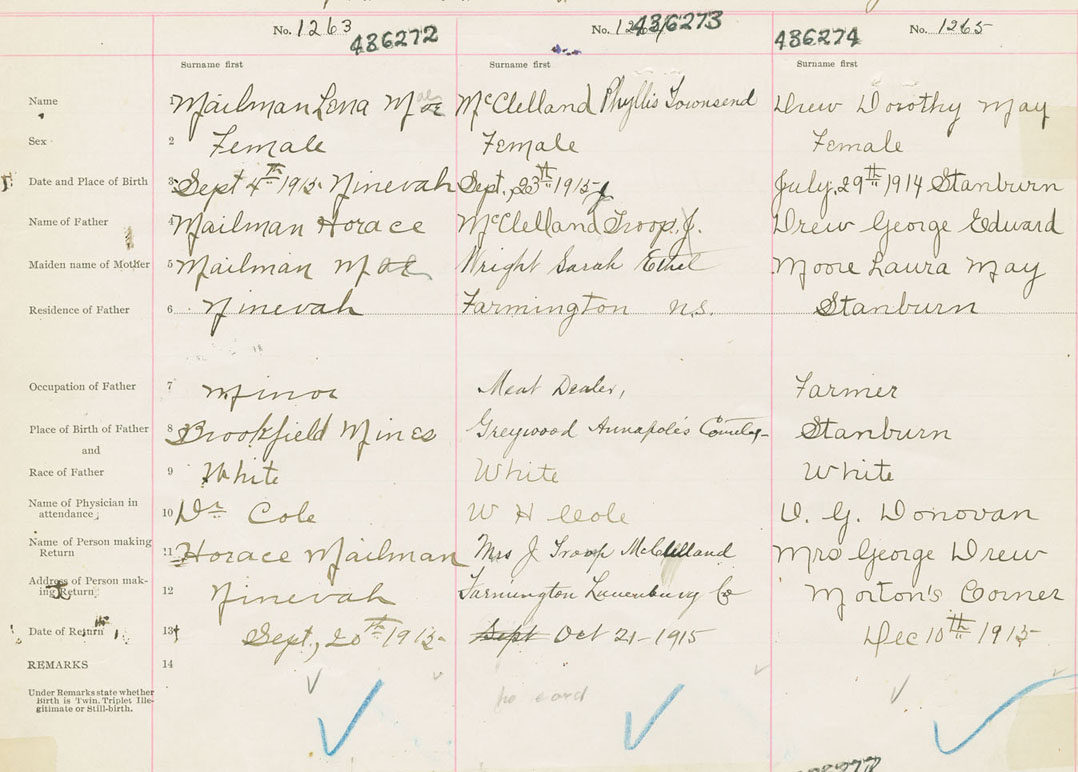 No. 1263 436272 No. 1264 436273 436274 No. 1265
Surname first Surname first Surname first
Name 1 Mailman Lena Mae McClelland Phyllis Townsend Drew Dorothy May
Sex 2 Female Female Female
Date and Place of Birth 3 Sept 4th 1915 Ninevah Sept. 23th 1915 July, 29th 1914 Stanburn
Name of Father 4 Mailman Horace McClelland Troop J. Drew George Edward
Maiden name of Mother 5 Mailman Mae Wright Sarah Ethel Moore Laura May
Residence of Father 6 Ninevah Farmington N.S. Stanburn
Occupation of Father 7 Minor Meat Dealer, Farmer
Place of Birth of Father 8 Brookfield Mines Greywood Annapolis County Stanburn
and
Race of Father 9 White White White
Name of Physician in
attendance 10 Dr Cole W H Cole D. G. Donovan
Name of Person making
Return 11 Horace Mailman Mrs J Troop McClelland Mrs George Drew
Address of Person mak-
ing Return 12 Ninevah Farmington Lunenburg Co Morton's Corner
Date of Return 13 Sept, 20th 1915 Sept Oct 21-1915 Dec 10th 1915
REMARKS 14
Under Remarks state whether
Birth is Twin, Triplet Ille-
gitimate or Still-birth.
no card